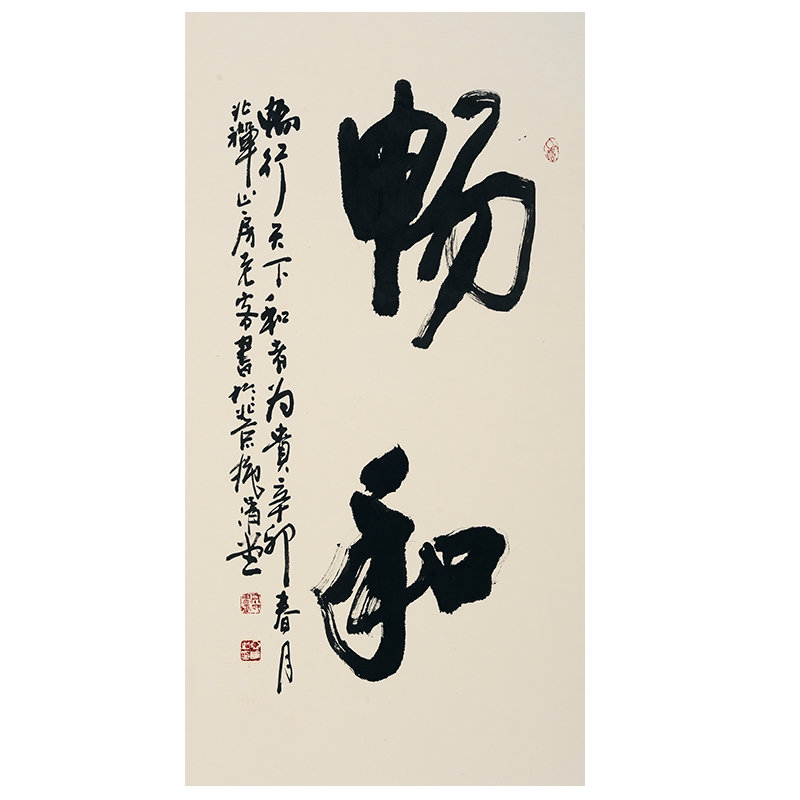 畅和
暢行天下和者为貴辛卯春月
北禅山房老客書於北京堂